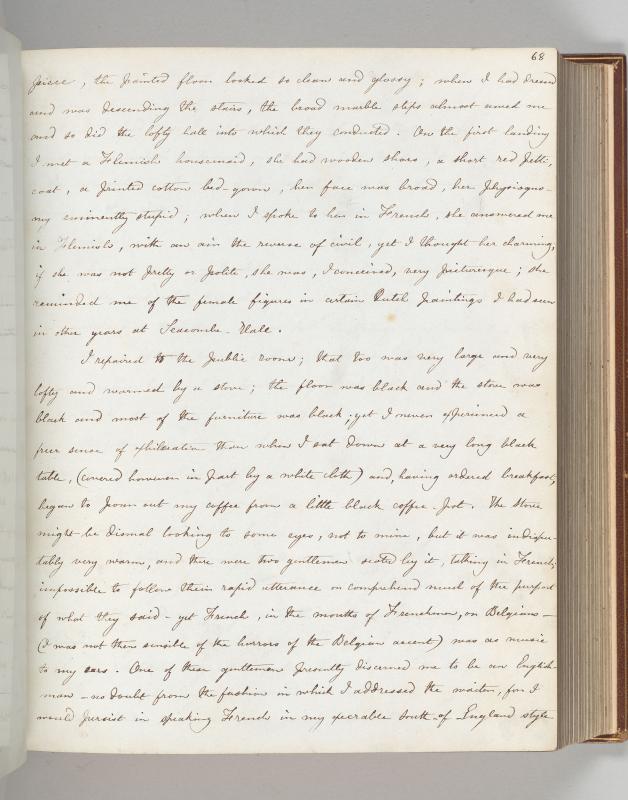 68
piece, the painted floor looked so clean and glossy; when I had dressed
and was descending the stairs, the broad marble steps almost awed me
and so did the lofty hall into which they conducted. On the first landing
I met a Flemish housemaid, she had wooden shoes, a short red petti,
coat, a printed cotton bed-gown, her face was broad, her physiogno-
my eminently stupid; when I spoke to her in French, she answered me
in Flemish, with an air the reverse of civil, yet I thought her charming,
if she was not pretty or polite, she was, I conceived, very picturesque; she
reminded me of the female figures in certain Dutch paintings I had seen
in other years at Seacombe-Hall.
I repaired to the public room; that too was very large and very
lofty and warmed by a stove; the floor was black and the stove was
black and most of the furniture was black; yet I never experienced a
freer sense of exhileration than when I sat down at a very long black
table, (covered however in part by a white cloth) and, having ordered breakfast,
began to pour out my coffee from a little black coffee-pot. The stove
might be dismal looking to some eyes, not to mine, but it was indispu-
tably very warm, and there were two gentlemen seated by it, talking in French;
impossible to follow their rapid utterance or comprehend much of the purport
of what they said - yet French, in the mouths of Frenchmen, or Belgians —
(I was not then sensible of the horrors of the Belgian accent) was as music
to my ears. One of these gentlemen presently discerned me to be an English-
man - no doubt from the fashion in which I addressed the waiter, for I
would persist in speaking French in my execrable South-of England style